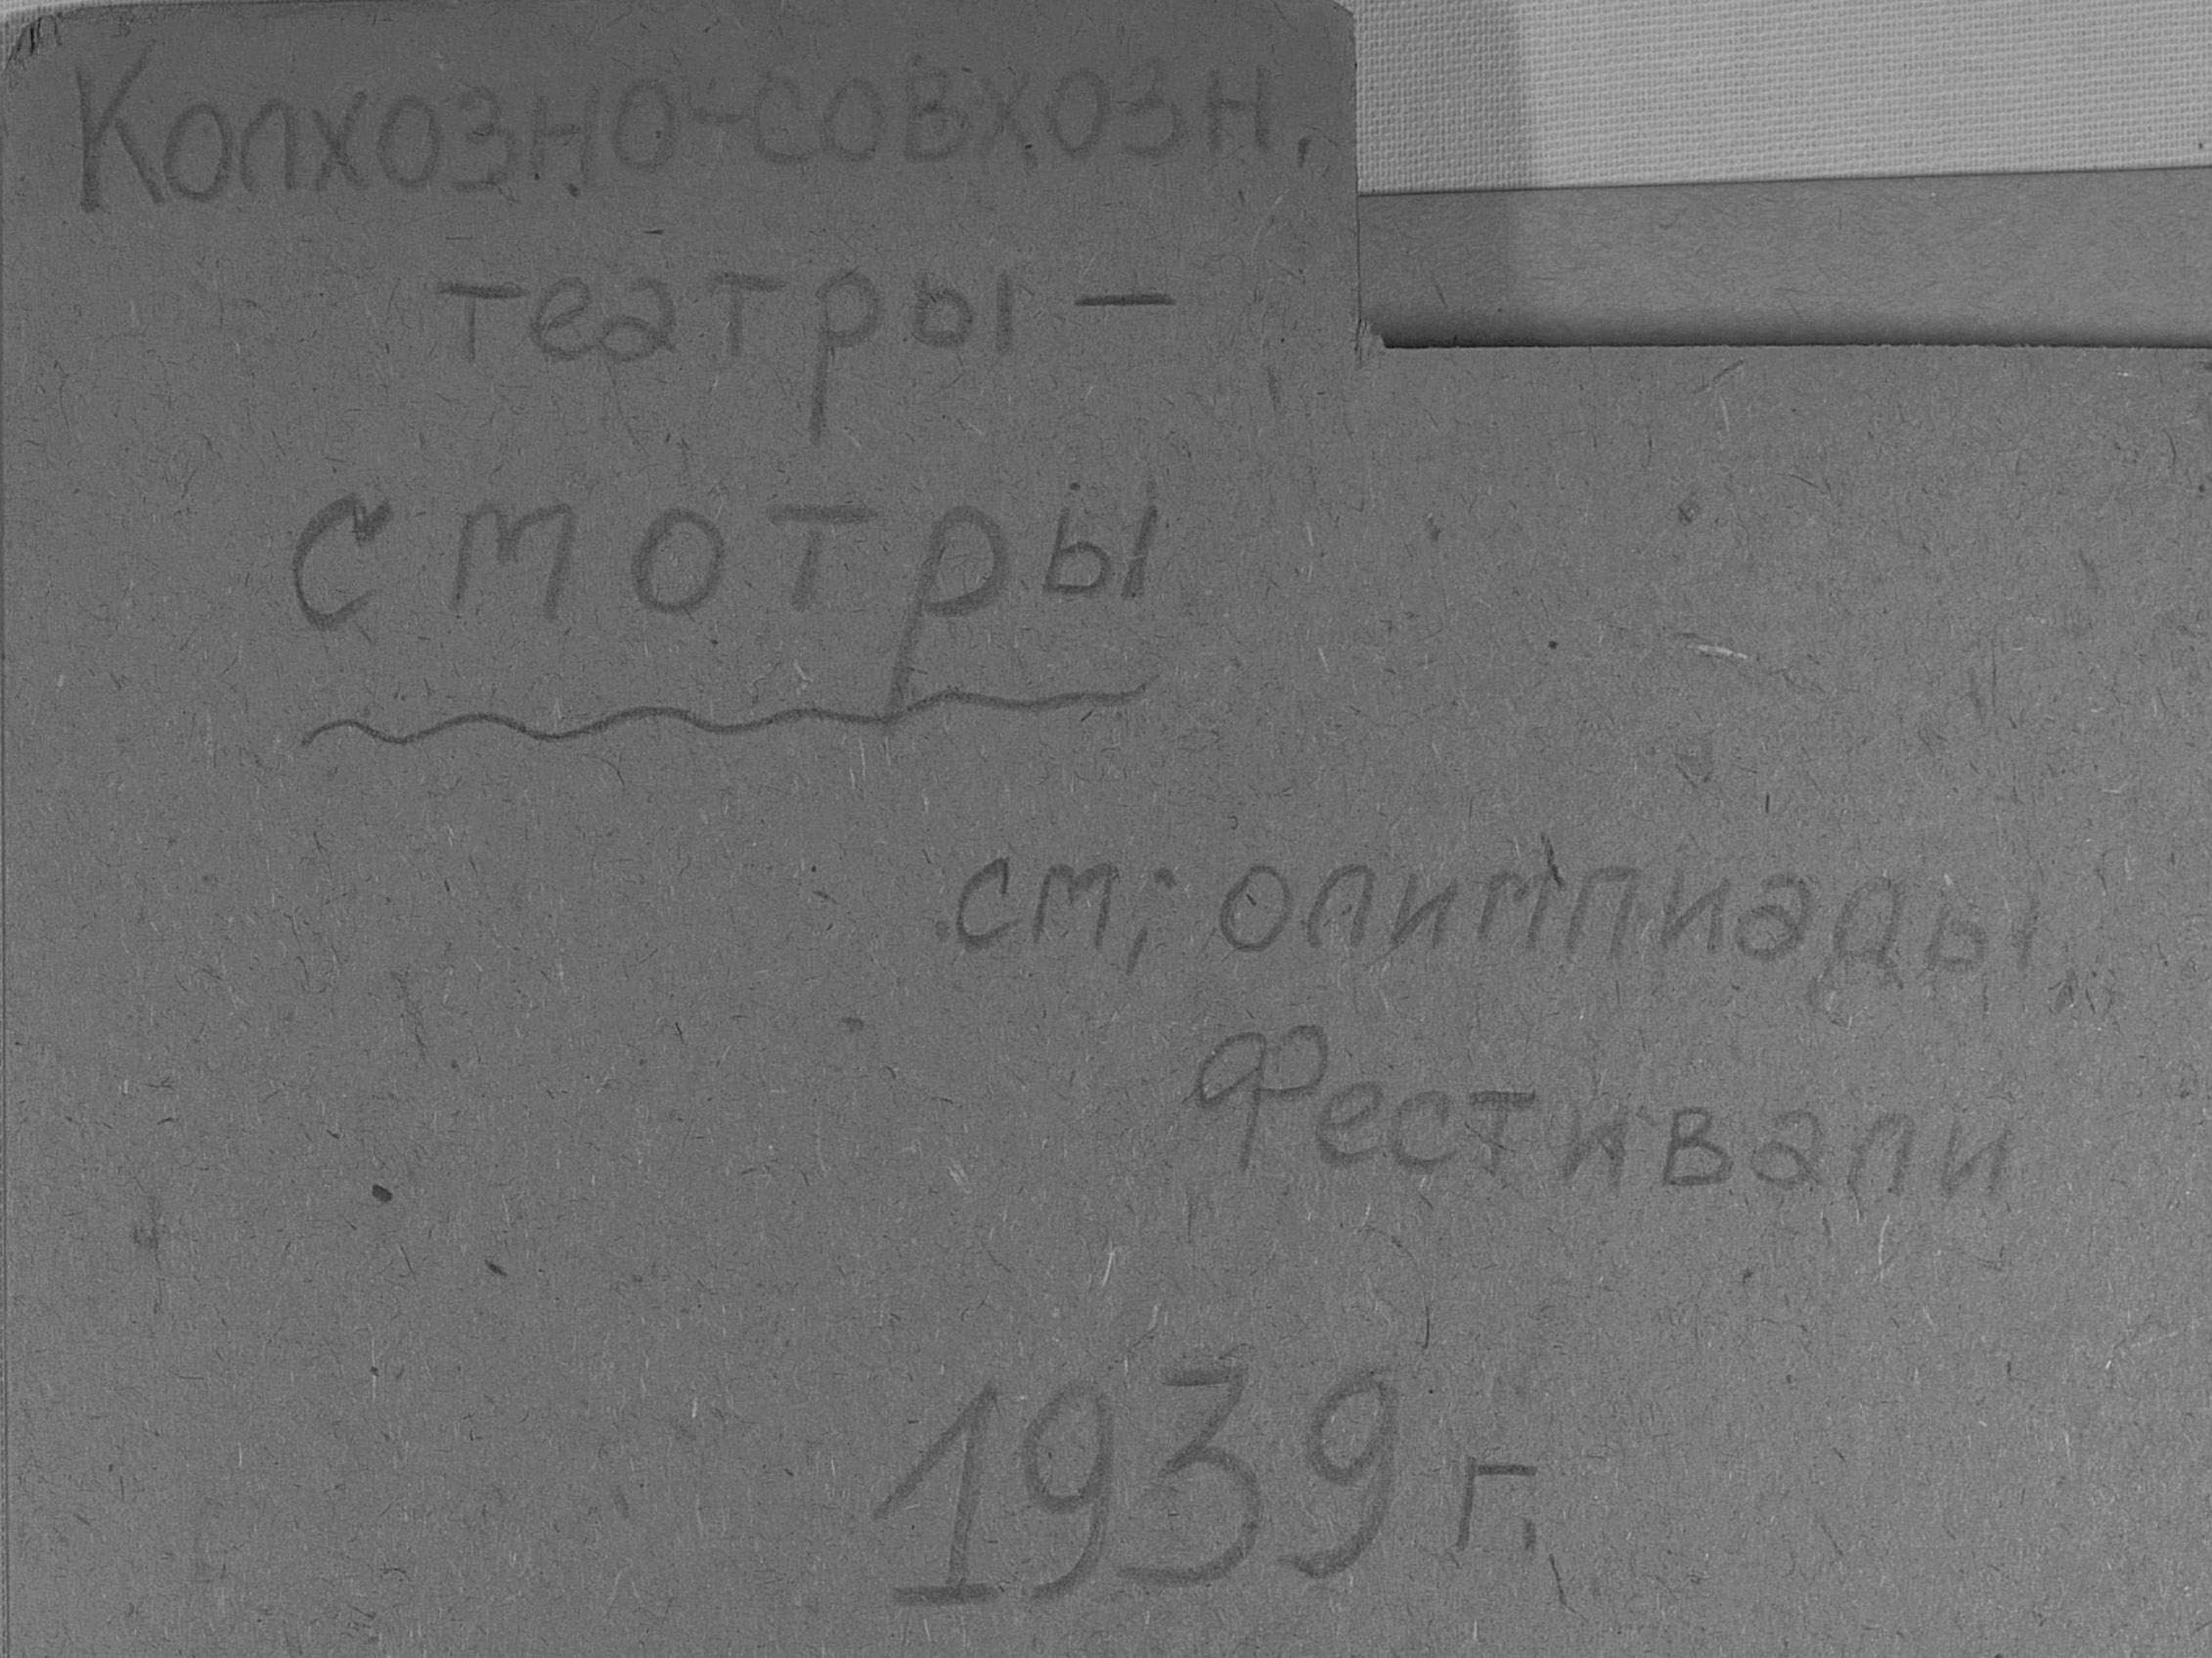 Колхозно-совхозн.
театры —
смотры
см; олимпиады,
Фестивали
1939 г.